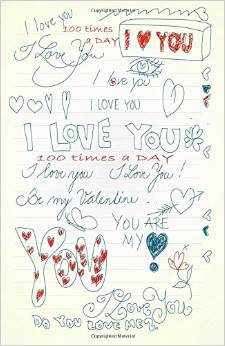 Copyrighted Material
I love you
100 times
a DAY
I ♥ YOU
I Love You
I love you
I LOVE YOU
I LOVE YOU
100 times a DAY
I love you I Love You!
Be my Valentine.
YOU ARE
MY
YOU
I Love You
DO YOU LOVE ME?
Copyrighted Material